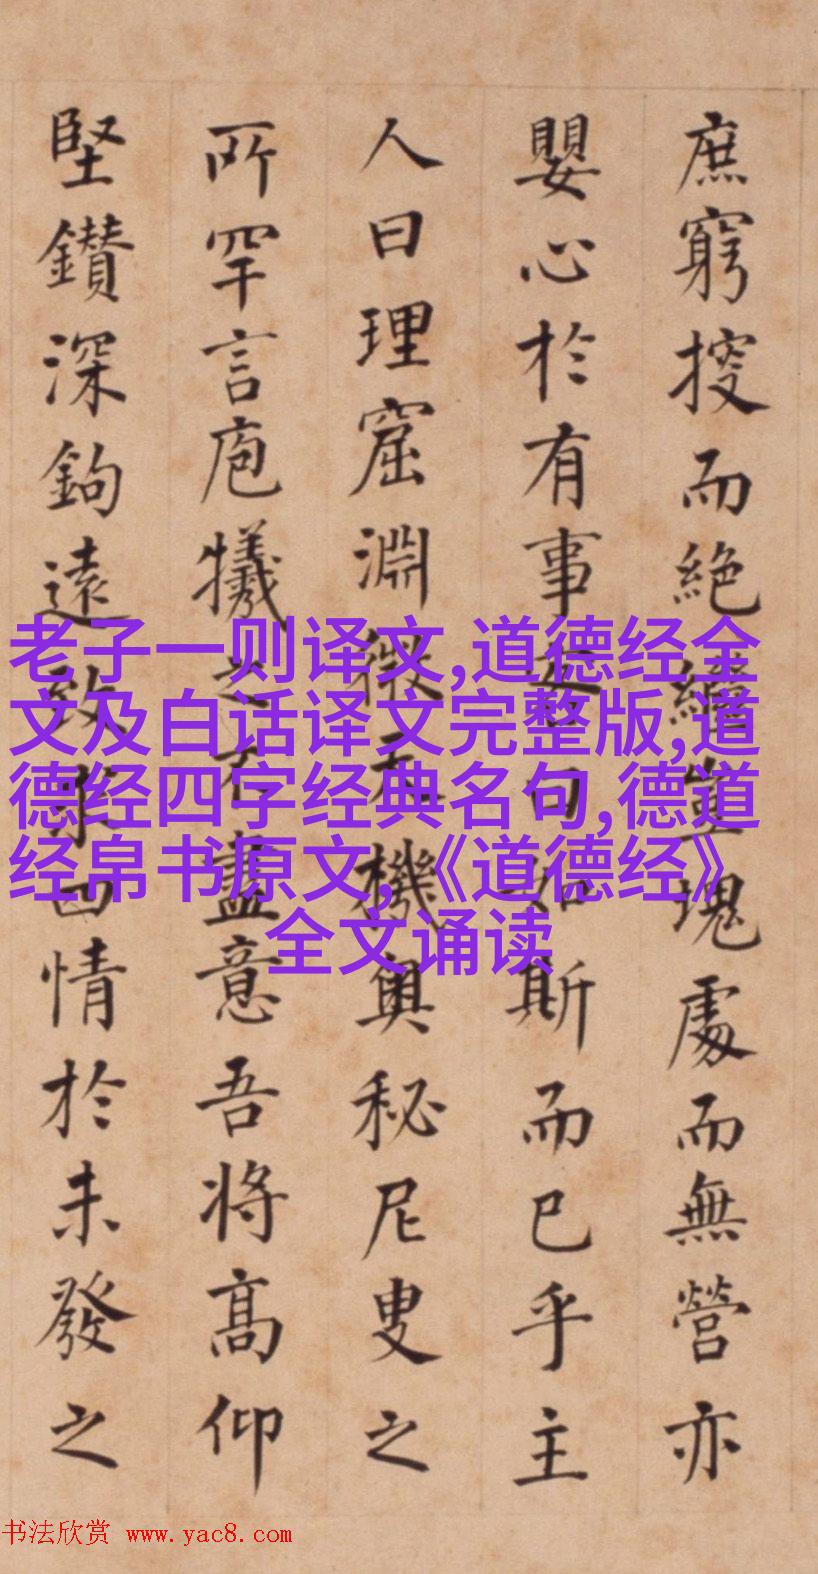 庶窮搜而絶豈塊處而無營亦
嬰心於有事曰如斯而已乎主
人曰理窟淵微天機奥秘尼叟之
所罕言庖犧之不盡意吾将髙仰
堅鑽深鉤遠致求四情於未發之
老子一则译文,道德经全
文及白话译文完整版,道
德经四字经典名句,德道
经帛书原文,《道德经》
全文诵读
书法欣赏 www.yac8.com